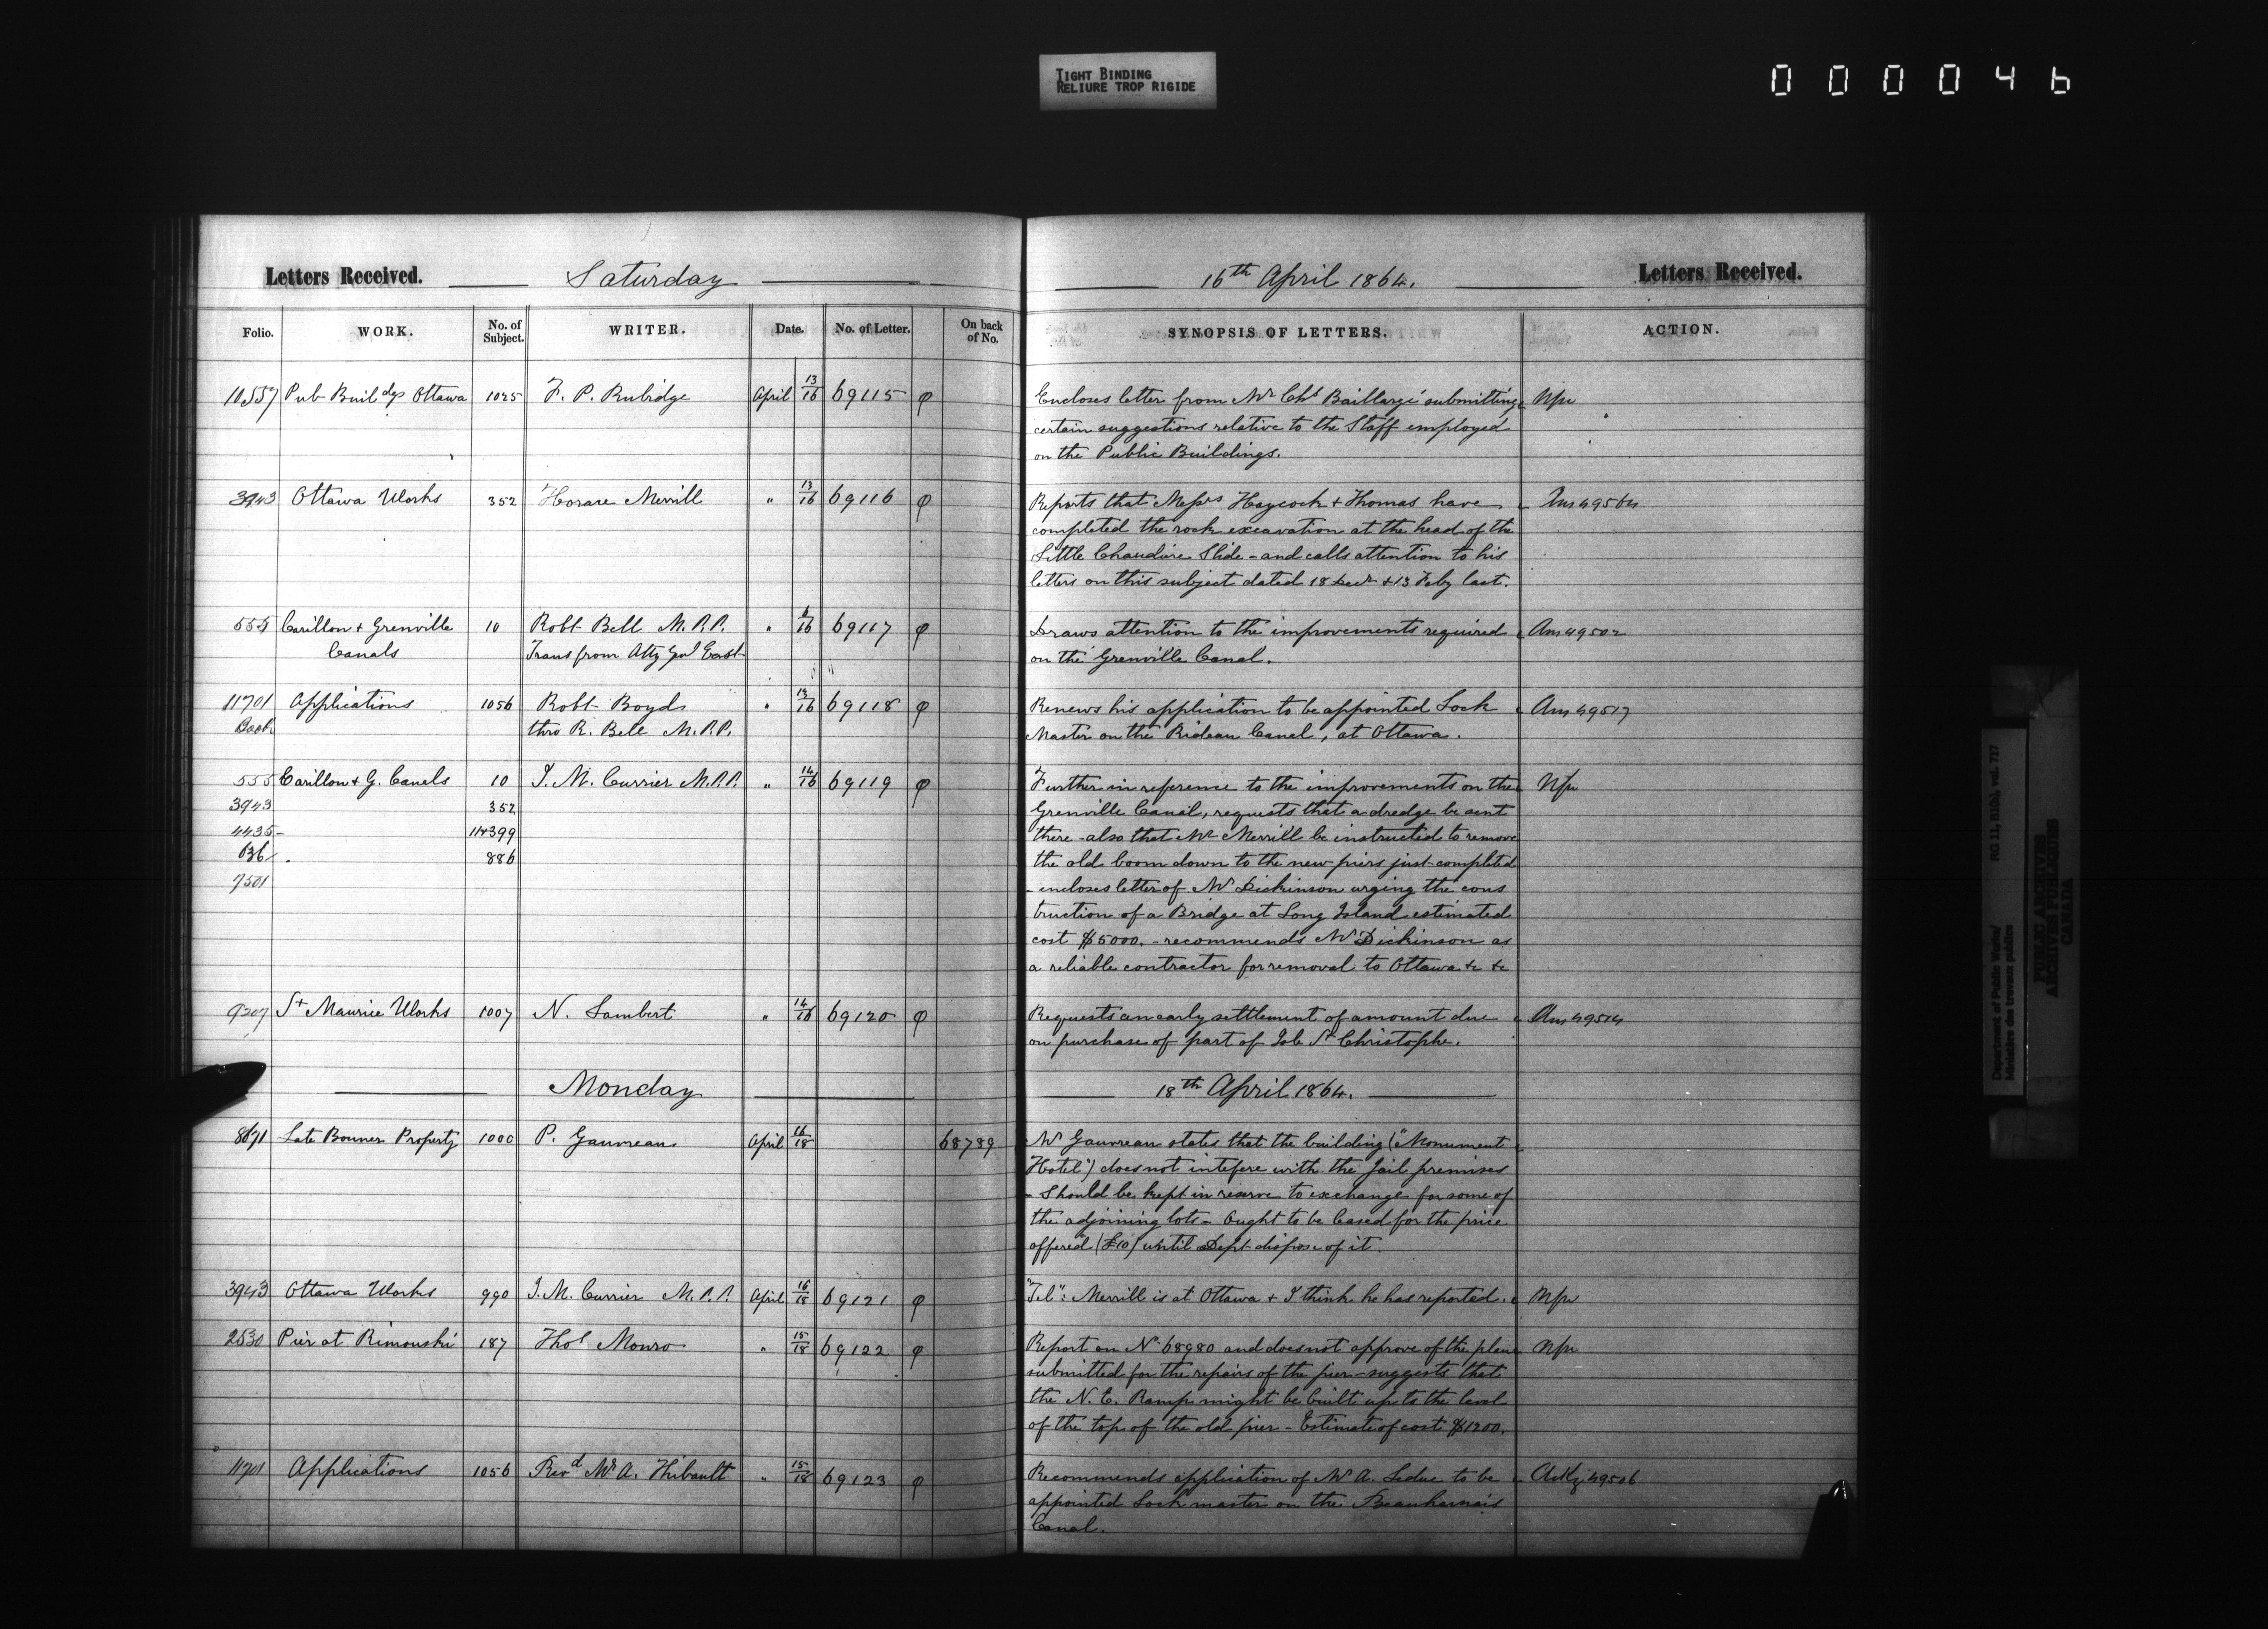 TIGHT BINDING
RELIURE TROP RIGIDE
000046
Letters Received. Saturday 16th April 1864. Letters Received.
Folio. WORK. No. of Subject. WRITER. Date. No. of Letter. On back of No. SYNOPSIS OF LETTERS. ACTION.
10557 Pub Buildgs Ottawa 1025 F. P. Rubidge April 13/16 69115 φ Encloses letter from Mr Chs Baillargé submitting
certain suggestions relative to the Staff employed
on the Public Buildings.
3943 Ottawa Works 352 Horace Merrill " 13/16 69116 φ Reports that Messrs Haycock & Thomas have
completed the rock excavation at the head of the
Little Chaudière Slide - and calls attention to his
letters on this subject dated 18 Decr & 13 Feby last.
555 Carillon & Grenville 10 Robt Bell M.P.P. " 69117 φ Draws attention to the improvements required Ans 49502
Canals Trans from Atty Genl East on the Grenville Canal.
11701 Applications 1056 Robt Boyd " 69118 φ Renews his application to be appointed Lock Ans 49517
Book thro R. Bell M.P.P. Master on the Rideau Canal, at Ottawa.
555 Carillon & G. Canals 10 J. M. Currier M.P.P. " 14/16 69119 φ Further in reference to the improvements on the
3943 352 Grenville Canal, requests that a dredge be sent
4435 - 399 there - also that Mr Merrill be instructed to remove
636 . 886 the old boom down to the new piers just completed
7501 - encloses letter of Mr Dickinson urging the cons
truction of a Bridge at Long Island estimated
cost $5000. - recommends Mr Dickinson as
a reliable contractor for removal to Ottawa &c &c
9207 St Maurice Works 1007 N. Lambert " 14/16 69120 φ Requests an early settlement of amount due Ans 49514
on purchase of part of Isle St Christophe.
Monday 18th April 1864.
8671 Late Bonner Property 1000 P. Gauvreau April 16/18 68789 Mr Gauvreau states that the building ("Monument
Hotel") does not intefere with the Jail premises
- Should be kept in reserve to exchange for some of
the adjoining lots - Ought to be leased for the price
offered (£10) until Dept dispose of it.
3943 Ottawa Works 990 J. M. Currier M.P.P. April 16/18 69121 φ "Tel": Merrill is at Ottawa & I think he has reported.
2530 Pier at Rimouski 187 Thos Monro " 15/18 69122 φ Report on No 68980 and does not approve of the plan
submitted for the repairs of the pier - suggests that
the N. E. Ramp might be built up to the level
of the top of the old pier - Estimate of cost $1200.
11701 Applications 1056 Revd Mr A. Thibault " 15/18 69123 φ Recommends application of Mr A. Leduc to be Ackg 49506
appointed Lock master on the Beauharnais
Canal.
Department of Public Works/ RG 11, B1(b), vol. 727
Ministère des travaux publics
PUBLIC ARCHIVES
ARCHIVES PUBLIQUES
CANADA